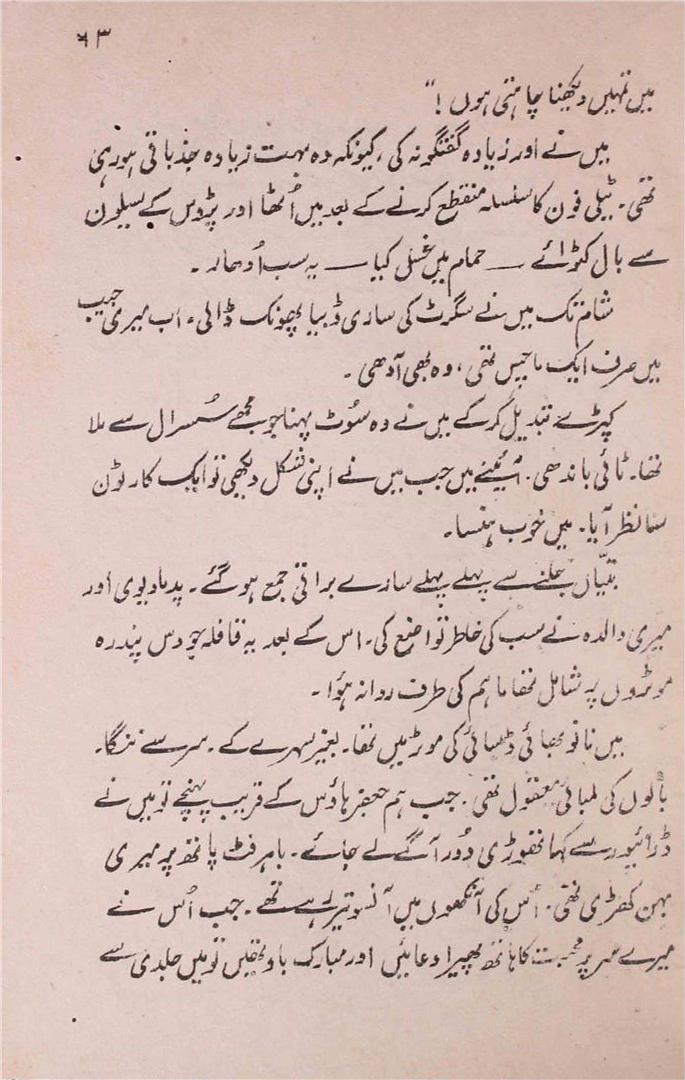 ۶۳
میں تمہیں دیکھنا چاہتی ہوں!"
میں نے اور زیادہ گفتگو نہ کی، کیونکہ وہ بہت زیادہ جذباتی ہو رہی
تھی۔ ٹیلی فون کا سلسلہ منقطع کرنے کے بعد میں اُٹھا اور پڑوس کے سیلون
سے بال کٹوائے — حمام میں غسل کیا — یہ سب اُدھار۔
شام تک میں نے سگرٹ کی ساری ڈبیا پھونک ڈالی۔ اب میری جیب
میں صرف ایک ماچس تھی، وہ بھی آدھی۔
کپڑے تبدیل کرکے میں نے وہ سُوٹ پہنا جو مجھے سُسرال سے ملا
تھا۔ ٹائی باندھی۔ آئینے میں جب میں نے اپنی شکل دیکھی تو ایک کارٹون
سا نظر آیا۔ میں خوب ہنسا۔
بتیاں جلنے سے پہلے پہلے سارے براتی جمع ہو گئے۔ پدما دیوی اور
میری والدہ نے سب کی خاطر تواضع کی۔ اس کے بعد یہ قافلہ جو دس پندرہ
موٹروں پر شامل تھا ماہم کی طرف روانہ ہوُا۔
میں نانو بھائی ڈسائی کی موٹر میں تھا۔ بغیر سہرے کے۔ سر سے ننگا۔
بالوں کی لمبائی معقول تھی۔ جب ہم جعفر ہاؤس کے قریب پہنچے تو میں نے
ڈرائیور سے کہا تھوڑی دُور آگے لے جائے۔ باہر فٹ پاتھ پر میری
بہن کھڑی تھی۔ اُس کی آنکھوں میں آنسو تیر رہے تھے۔ جب اُس نے
میرے سر پر محبت کا ہاتھ پھیرا دعائیں اور مبارک باد بخشیں تو میں جلدی سے